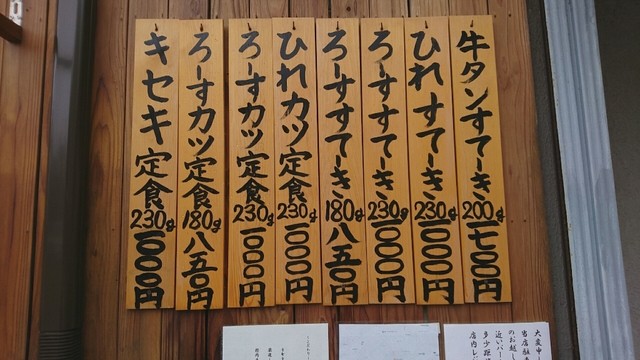 牛タンすてーき200g一七〇〇円
ひれすてーき230g一〇〇〇円
ろーすすてーき230g一〇〇〇円
ろーすすてーき180g八五〇円
ひれカツ定食230g一〇〇〇円
ろーすカツ定食230g一〇〇〇円
ろーすカツ定食180g八五〇円
キセキ定食230g一〇〇〇円
大変申
当店駐
のお越
近いパー
多少担
店内レジ